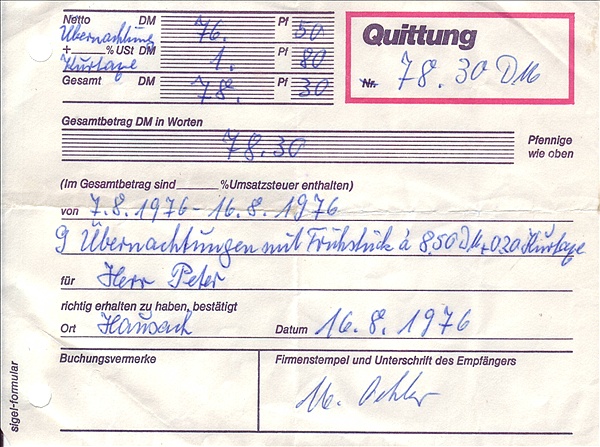 Netto DM Pf
Übernachtung 76. 50
+ % USt DM Pf
Kurtaxe 1. 80
Gesamt DM 78. Pf 30
Quittung
Nr. 78.30 DM
Gesamtbetrag DM in Worten
78.30
Pfennige
wie oben
(Im Gesamtbetrag sind % Umsatzsteuer enthalten)
von 7.8.1976 - 16.8.1976
9 Übernachtungen mit Frühstück à 8,50 DM + 0.20 Kurtaxe
für Herr Peter
richtig erhalten zu haben, bestätigt
Ort Hausach Datum 16.8.1976
Buchungsvermerke
Firmenstempel und Unterschrift des Empfängers
M. Oehler
sigel-formular